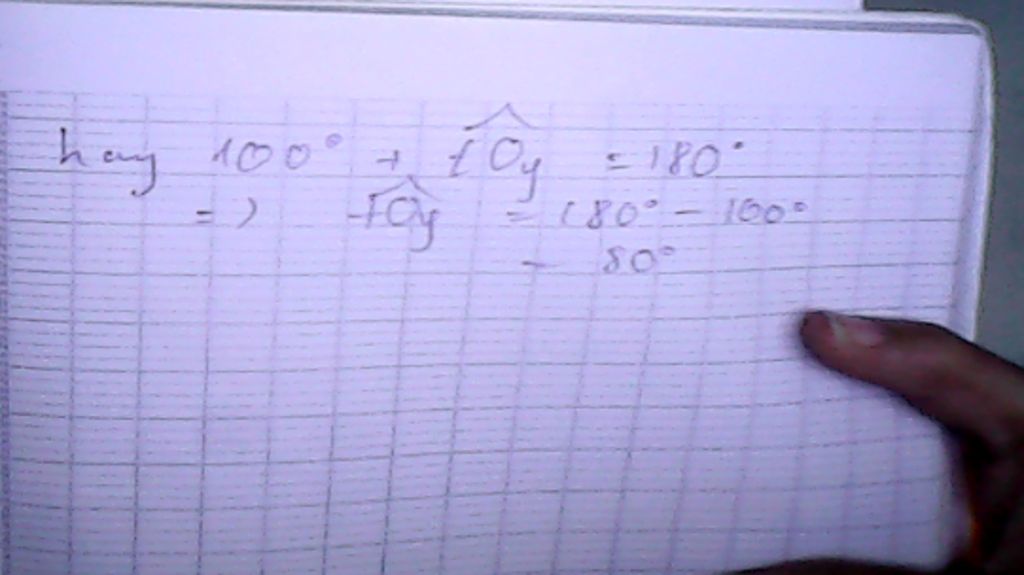 hay 100° + tOy = 180°
=> tOy = 180° - 100°
= 80°